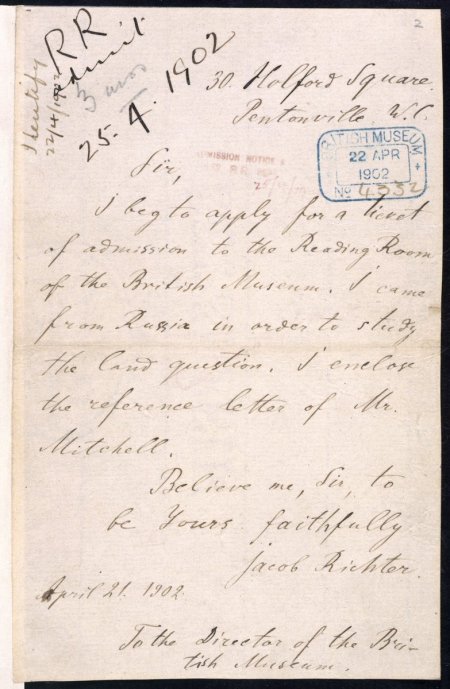 2
Identify
22/4/1902
RR
Admit
3 mos
25.4.1902
30. Holford Square.
Pentonville. W.C.
BRITISH MUSEUM
22 APR
1902
No 4332
ADMISSION NOTICE
Sir,
I beg to apply for a ticket
of admission to the Reading Room
of the British Museum. I came
from Russia in order to study
the land question. I enclose
the reference letter of Mr.
Mitchell.
Believe me, Sir, to
be Yours faithfully
Jacob Richter.
April 21. 1902.
To the Director of the Bri-
tish Museum.